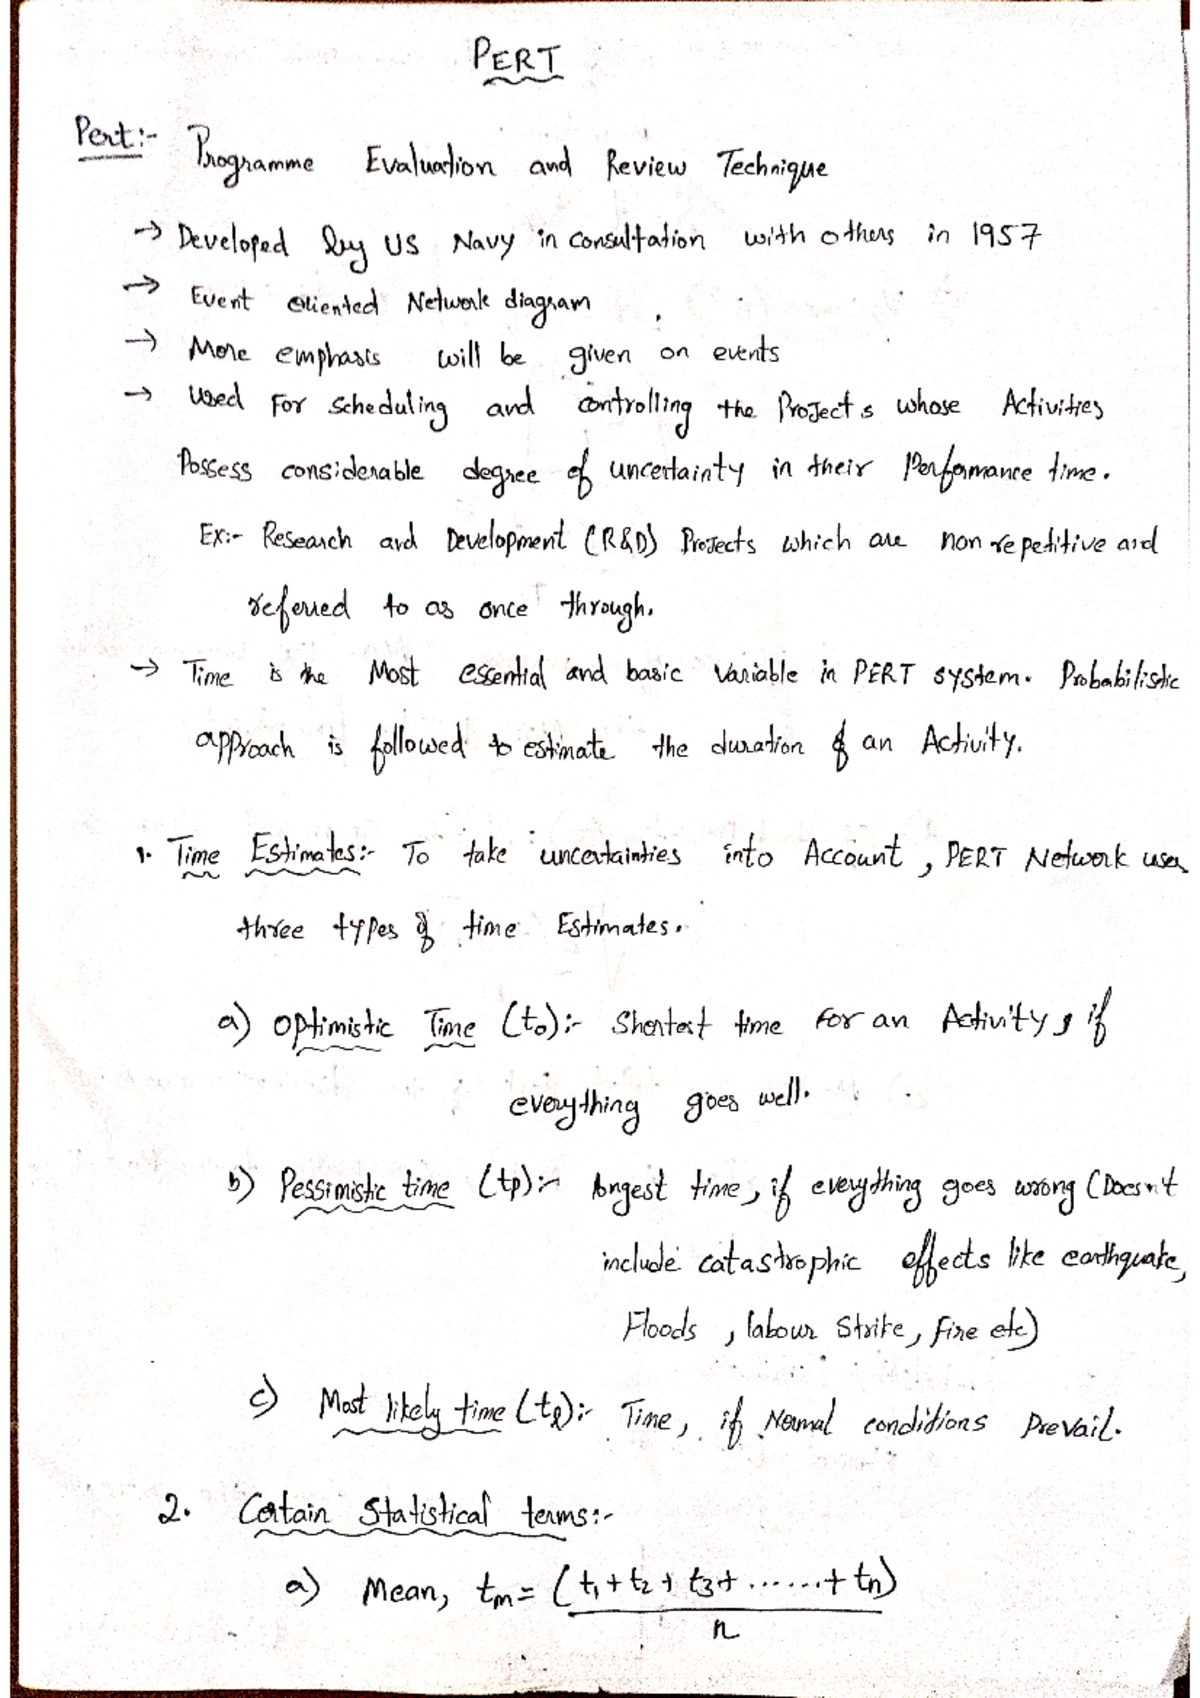 PERT
Pert:- Programme Evaluation and Review Technique
→ Developed by US Navy in consultation with others in 1957
→ Event oriented Network diagram
→ More emphasis will be given on events
→ Used For scheduling and controlling the Projects whose Activities
Possess considerable degree of uncertainty in their Performance time.
Ex:- Research and Development (R&D) Projects which are non repetitive and
referred to as once through.
→ Time is the Most essential and basic variable in PERT system. Probabilistic
approach is followed to estimate the duration of an Activity.
1. Time Estimates:- To take uncertainties into Account, PERT Network uses
three types of time Estimates.
a) Optimistic Time (to):- Shortest time For an Activity, if
everything goes well.
b) Pessimistic time (tp):- longest time, if everything goes wrong (Doesn't
include catastrophic effects like earthquake,
Floods, labour Strike, fire etc)
c) Most likely time (tl):- Time, if Normal conditions Prevail.
2. Certain Statistical terms:-
a) Mean, tm = (t1 + t2 + t3 + ...... + tn)
n